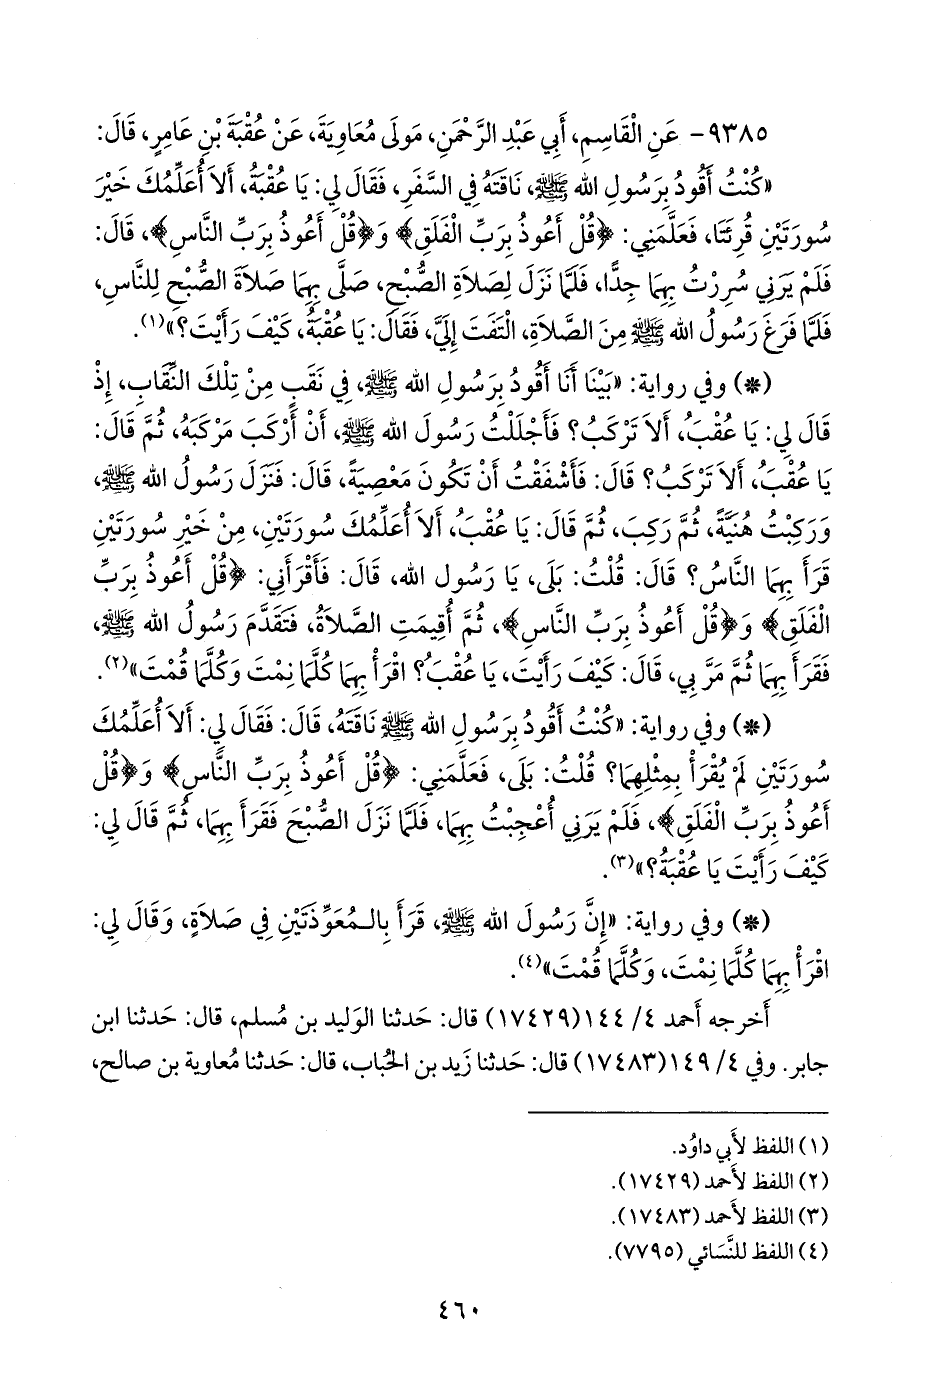 ٩٣٨٥- عَنِ الْقَاسِمِ، أَبِي عَبْدِ الرَّحْمَنِ، مَولَى مُعَاوِيَةَ، عَنْ عُقْبَةَ بْنِ عَامِرٍ، قَالَ:
«كُنْتُ أَقُودُ بِرَسُولِ الله ﷺ، نَاقَتَهُ فِي السَّفَرِ، فَقَالَ لِي: يَا عُقْبَةُ، أَلاَ أُعَلِّمُكَ خَيْرَ
سُورَتَيْنِ قُرِئَتَا، فَعَلَّمَنِي: ﴿قُلْ أَعُوذُ بِرَبِّ الْفَلَقِ﴾ وَ﴿قُلْ أَعُوذُ بِرَبِّ النَّاسِ﴾، قَالَ:
فَلَمْ يَرَنِي سُرِرْتُ بِهِمَا جِدًّا، فَلَمَّا نَزَلَ لِصَلاَةِ الصُّبْحِ، صَلَّى بِهِمَا صَلاَةَ الصُّبْحِ لِلنَّاسِ،
فَلَمَّا فَرَغَ رَسُولُ الله ﷺ مِنَ الصَّلاَةِ، الْتَفَتَ إِلَيَّ، فَقَالَ: يَا عُقْبَةُ، كَيْفَ رَأَيْتَ؟»(١).
(*) وفي رواية: «بَيْنَا أَنَا أَقُودُ بِرَسُولِ الله ﷺ، فِي نَقَبٍ مِنْ تِلْكَ النِّقَابِ، إِذْ
قَالَ لِي: يَا عُقْبُ، أَلاَ تَرْكَبُ؟ فَأَجْلَلْتُ رَسُولَ الله ﷺ، أَنْ أَرْكَبَ مَرْكَبَهُ، ثُمَّ قَالَ:
يَا عُقْبُ، أَلاَ تَرْكَبُ؟ قَالَ: فَأَشْفَقْتُ أَنْ تَكُونَ مَعْصِيَةً، قَالَ: فَنَزَلَ رَسُولُ الله ﷺ،
وَرَكِبْتُ هُنَيَّةً، ثُمَّ رَكِبَ، ثُمَّ قَالَ: يَا عُقْبُ، أَلاَ أُعَلِّمُكَ سُورَتَيْنِ، مِنْ خَيْرِ سُورَتَيْنِ
قَرَأَ بِهِمَا النَّاسُ؟ قَالَ: قُلْتُ: بَلَى، يَا رَسُولَ الله، قَالَ: فَأَقْرَأَنِي: ﴿قُلْ أَعُوذُ بِرَبِّ
الْفَلَقِ﴾ وَ﴿قُلْ أَعُوذُ بِرَبِّ النَّاسِ﴾، ثُمَّ أُقِيمَتِ الصَّلاَةُ، فَتَقَدَّمَ رَسُولُ الله ﷺ،
فَقَرَأَ بِهِمَا ثُمَّ مَرَّ بِي، قَالَ: كَيْفَ رَأَيْتَ، يَا عُقْبُ؟ اقْرَأْ بِهِمَا كُلَّمَا نِمْتَ وَكُلَّمَا قُمْتَ»(٢).
(*) وفي رواية: «كُنْتُ أَقُودُ بِرَسُولِ الله ﷺ نَاقَتَهُ، قَالَ: فَقَالَ لِي: أَلاَ أُعَلِّمُكَ
سُورَتَيْنِ لَمْ يُقْرَأْ بِمِثْلِهِمَا؟ قُلْتُ: بَلَى، فَعَلَّمَنِي: ﴿قُلْ أَعُوذُ بِرَبِّ النَّاسِ﴾ وَ﴿قُلْ
أَعُوذُ بِرَبِّ الْفَلَقِ﴾، فَلَمْ يَرَنِي أُعْجِبْتُ بِهِمَا، فَلَمَّا نَزَلَ الصُّبْحَ فَقَرَأَ بِهِمَا، ثُمَّ قَالَ لِي:
كَيْفَ رَأَيْتَ يَا عُقْبَةُ؟»(٣).
(*) وفي رواية: «إِنَّ رَسُولَ الله ﷺ، قَرَأَ بِالْمُعَوِّذَتَيْنِ فِي صَلاَةٍ، وَقَالَ لِي:
اقْرَأْ بِهِمَا كُلَّمَا نِمْتَ، وَكُلَّمَا قُمْتَ»(٤).
أَخرجه أَحمد ٤/ ١٤٤(١٧٤٢٩) قال: حَدثنا الوَليد بن مُسلم، قال: حَدثنا ابن
جابر. وفي ٤/ ١٤٩(١٧٤٨٣) قال: حَدثنا زَيد بن الحُباب، قال: حَدثنا مُعاوية بن صالح،
(١) اللفظ لأَبي داوُد.
(٢) اللفظ لأَحمد (١٧٤٢٩).
(٣) اللفظ لأَحمد (١٧٤٨٣).
(٤) اللفظ للنَّسَائي (٧٧٩٥).
٤٦٠